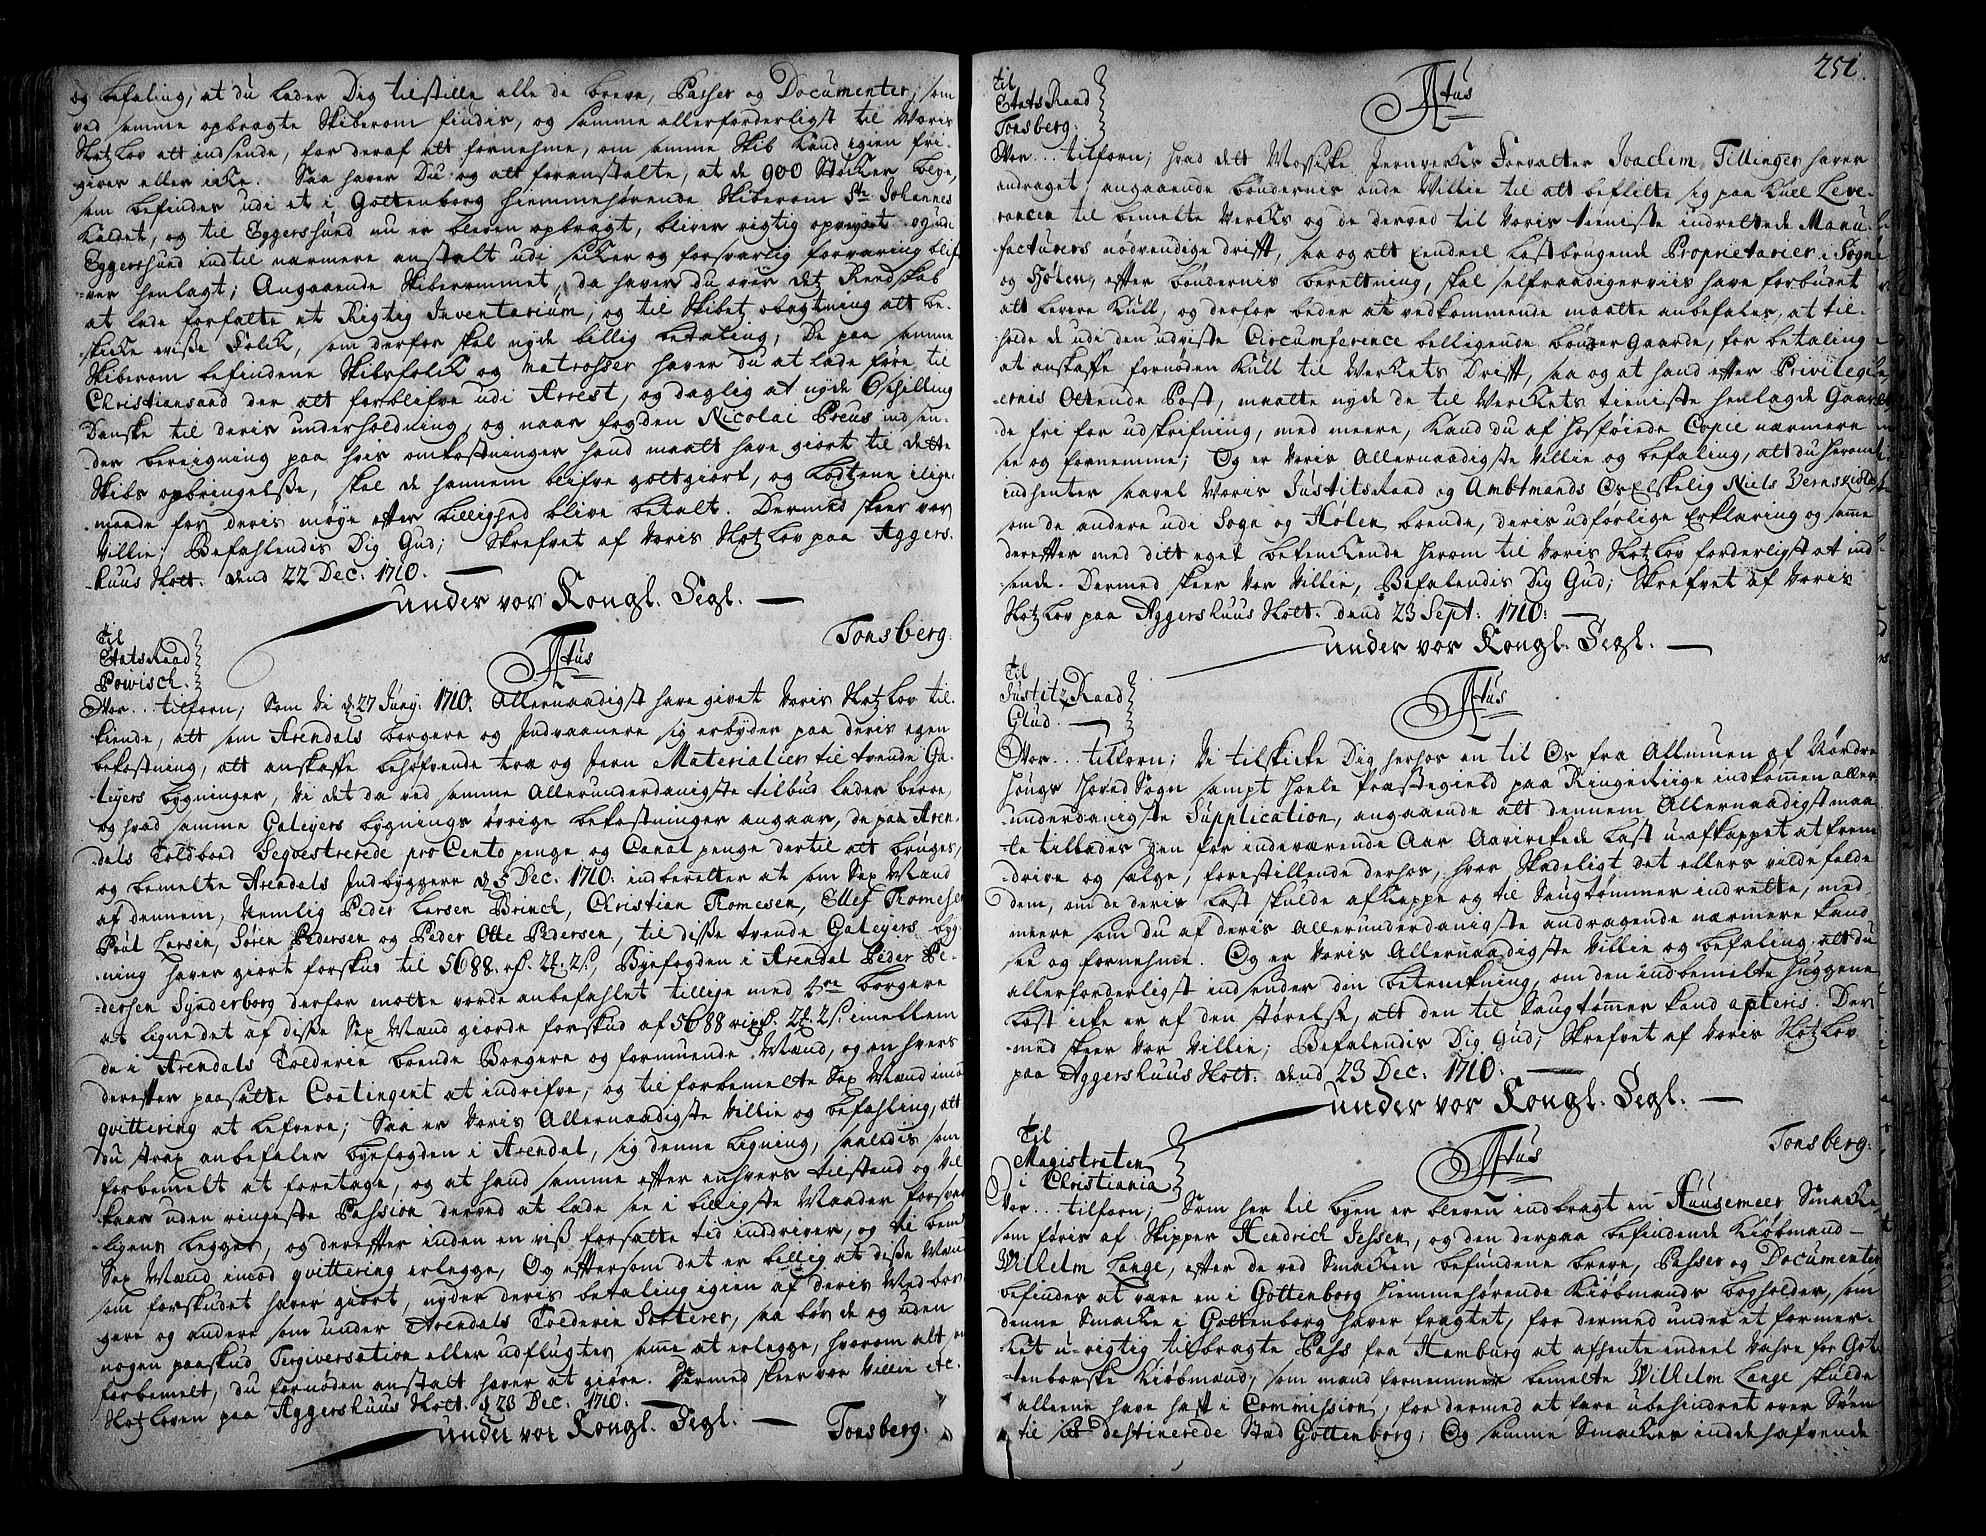 og befaling, at du lader Dig tilstille alle de breve, Passer og Documenter, som
ved samme opbragte Skiberom findis, og samme allerforderligst til Voris
Slotzlov alt indsende, for deraf alt fornehme, om samme Skib kand igien fri-
gives eller icke. Saa haver Du og alt foranstalte, at de 900 Stöcker blye,
som befindes udi et i Gottenborg hiemmehörende Skiberom St. Johannes
kaldet, og til Eggersund nu er bleven opbragt, bliver rigtig opveyet og udi
Eggersund indtil nærmere anstalt udi sicker og forsvarlig forvaring blif-
-ver henlagt; Angaaende Skiberommet, da haver du over det Redskab
at lade forfatte et Rigtig Inventarium, og til Skibet obagtning alt be-
skicke visse Folck, som derfor skal nyde billig betaling; De paa samme
Skiberom befindene Skibsfolck og Matrosser haver du at lade före til
Christiansand der alt forblifve udi Arrest, og daglig at nyde 6 schilling
Danske til deris underholdning, og naar fogden Nicolai Preus indsen-
der bereigning paa hvis omkostninger hand maatt have giort til dette
Skibs opbringelse, skal de hannem blifve gottgiort, og Lodtzene iligе-
maade for deris möye efter billighed blive betalt. Dermed skeer vor
Villie; Befahlendis Dig Gud; Skrefvet af Voris Slotzlov paa Aggers-
-huus Slott. dend 22 Dec. 1710.
under vor Kongl. Segl.
Tonsberg.
Til
Etats Raad
Powisch.
Titus
Vor... tilforn; Som Vi d. 27 Juny. 1710. Allernaadigst have givet Voris Slotzlov til-
kiende, alt som Arendals borgere og Indvaanere sig erbyder paa deris egen
bekostning, alt anskaffe behöfvende træ og Jern Materialier til trende Ga-
leyers bygninger, Vi det da ved samme Allerunderdanigste tilbud lader beroe,
og hvad samme Galeyers bygnings övrige bekostninger angaar, de paa Aren-
dals Toldbod Seqvestrerede pro Cento penge og Canat penge dertil alt bruges,
og bemelte Arendals Indbyggere d. 5 Dec. 1710. indberetter at som Sex Mænd
af dennem, Nemlig Peder Larsen Brinch, Christian Tomesen, Ellef Tomesen
Poul Larsen, Sören Pedersen og Peder Otte Pedersen, til disse trende Galeyers byg-
-ning haver giort forskud til 5688. rd. 2f. 2s., Byefogden i Arendal Peder Pe-
dersen Synderborg derfor motte vorde anbefahlet tillige med 4re borgere
at ligne det af disse Sex Mænd giorde forskud af 5688 rixd. 2f. 2s. imellem
de i Arendals Tolderie boende Borgere og formuende Mænd, og en hvers
derefter paasatte Contingent at indrifve, og til forbemelte Sex Mænd imod
qvittering at lefvere; Saa er Voris Allernaadigste Villie og befahling, att
du strax anbefaler byefogden i Arendal, sig denne ligning, saaledis som
forbemelt at foretage, og at hand samme efter enhvers tilstand og Vil-
kaar uden ringeste Passion derved at lade see i billigste Maader forsvar-
ligens legger, og derefter inden en viss forsatte tid inddriver, og til bem.te
Sex Mænd imod qvittering erlegge, Og eftersom det er billig at disse Mænd
som forskudet haver giort, nyder deris betaling igien af deris Medbor-
gere og andre som under Arendals Tolderie Sorterer, saa bör de og uden
nogen paaskud Tergiversation eller udflugter samme at erlegge, hvorom alt som
forbemelt, du fornöden anstalt haver at giöre. Dermed skeer vor Villie etc.
Slotzloven paa Aggershuus Slott. d. 23 Dec. 1710.
under vor Kongl. Segl.
Tonsberg.
251.
Til
Etats Raad
Tonsberg.
Titus
Vor... tilforn; hvad delt Mossiske Jernvercks Forvalter Joachim Tillinger haver
andraget, angaaende böndernis onde Villie til alt beflitte sig paa Kull Leve-
rancen til bemelte Vercks og de derved til Voris tieniste indrettede Manu-
facturers nödvendige drift, saa og alt Eendeel Lastbrugende Proprietarier i Sogne
og Hölen, efter böndernis berettning, skal selfraadigerviis have forbudet
alt levere Kull, og derfor beder at vedkommende maatte anbefales, at til-
holde de udi den udviste Circumference belligende bönder Gaarde, for betaling
at anskaffe fornöden Kull til Verckets Drift, saa og at hand efter Privilegi-
ernes Ottende Post, maatte nyde de til Verckets tieniste henlagde Gaar-
de fri for udskrifning, med meere, kand du af hosföiede Copie nærmere
see og fornemme; Og er Voris Allernaadigste Villie og befaling, alt du herom
indhenter saavel Voris Justits Raad og Ambtmands Os Elskelig Niels Vernskiold
som de andere udi Sogn og Hölen boende, deris udförlige Erklaring og samme
derefter med ditt eget betenckende herom til Voris Slotzlov forderligst at ind-
sende. Dermed skeer Vor Villie, Befalendis Dig Gud; Skrefvet af Voris
Slotzlov paa Aggershuus Slott. dend 23 Sept. 1710.
under vor Kongl. Segl.
Til
Justitz Raad
Glud.
Titus
Vor... tilforn; Vi tilskicke Dig herhos en til Os fra Allmuen af Nordre
Höngs Hoved Sogn sampt Hoele Præstegield paa Ringeriige indkommen aller-
underdanigste Supplication, angaaende alt dennem Allernaadigst maa-
te tillades een for indeværende Aar Aarvirckede Last u-afkappet at frem-
drive og sælge, forestillende derhos, hvor skadeligt det ellers vilde falde
dem, om de deris Last skulde afkappe og til Saugtömmer indrette, med
meere som du af deris Allerunderdanigste andragende nærmere kand
see og fornehme. Og er Voris Allernaadigste Villie og befaling, alt du
allerforderligst indsender din betenckning, om den indbemelte huggene
Last icke er af den störelse, alt den til Saugtömer kand apteris. Der-
med skeer Vor Villie; Befalendis Dig Gud; Skrefvet af Voris Slotzlov
paa Aggershuus Slott. dend 23 Dec. 1710.
under vor Kongl. Segl.
Tonsberg.
Til
Magistraten
i Christiania
Titus
Vor... tilforn; Som her til byen er bleven indbragt en Huusemeer Smacke
som föris af Skipper Hendrich Jessen, og den derpaa befindende Kiöbmand
Wilhelm Lange, efter de ved Smacken befundene breve, Passer og Documenter
befindes at være en i Gottenborg hiemmehörende Kiöbmands bogholder, som
denne Smacke i Gottenborg haver fragtet, for dermed under et former-
ket u-rigtig tilbragte Pass fra Hamburg at afhente endeel Vahre for Got-
tenborske Kiöbmænd, som mand fornemmer bemelte Wilhelm Lange skulde
alleene have haft i Commission, for dermed at fare ubehindret over Söen
til destinerede Stad Gottenborg; Og samme Smackes indehafvende